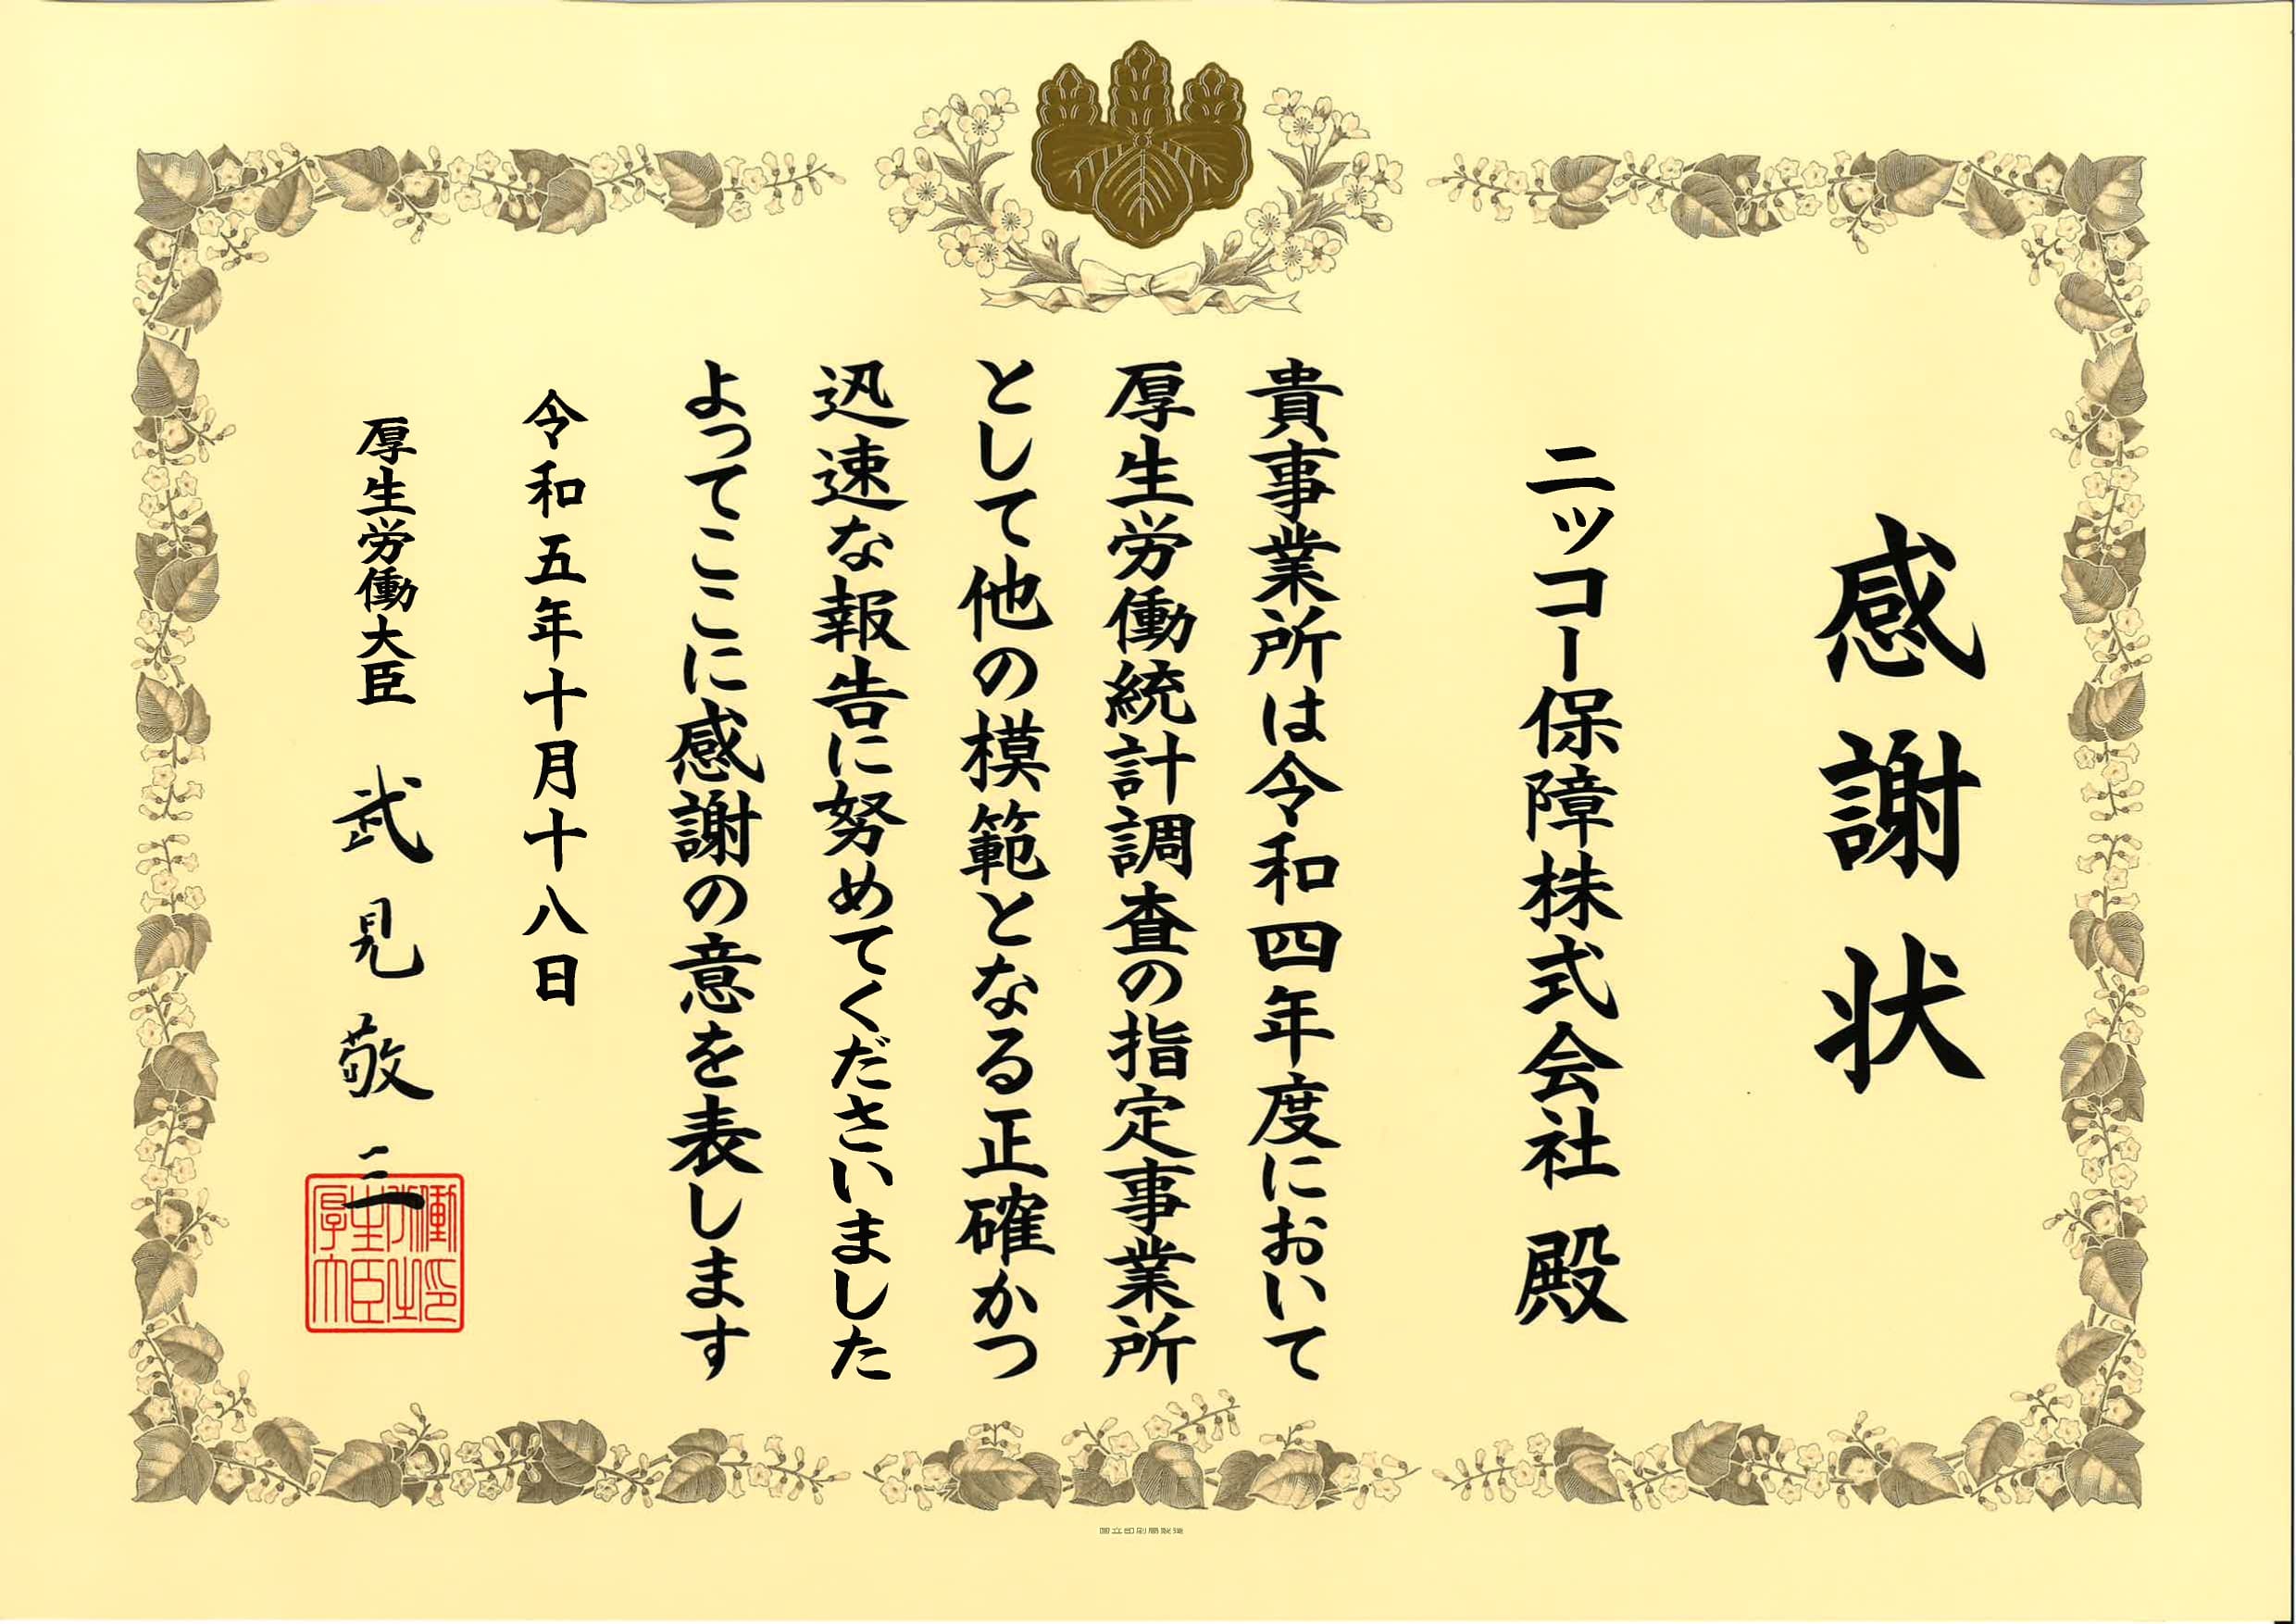 感謝状
ニッコー保障株式会社 殿
貴事業所は令和四年度において
厚生労働統計調査の指定事業所
として他の模範となる正確かつ
迅速な報告に努めてくださいました
よってここに感謝の意を表します
令和五年十月十八日
厚生労働大臣 武見敬三
国立印刷局製造